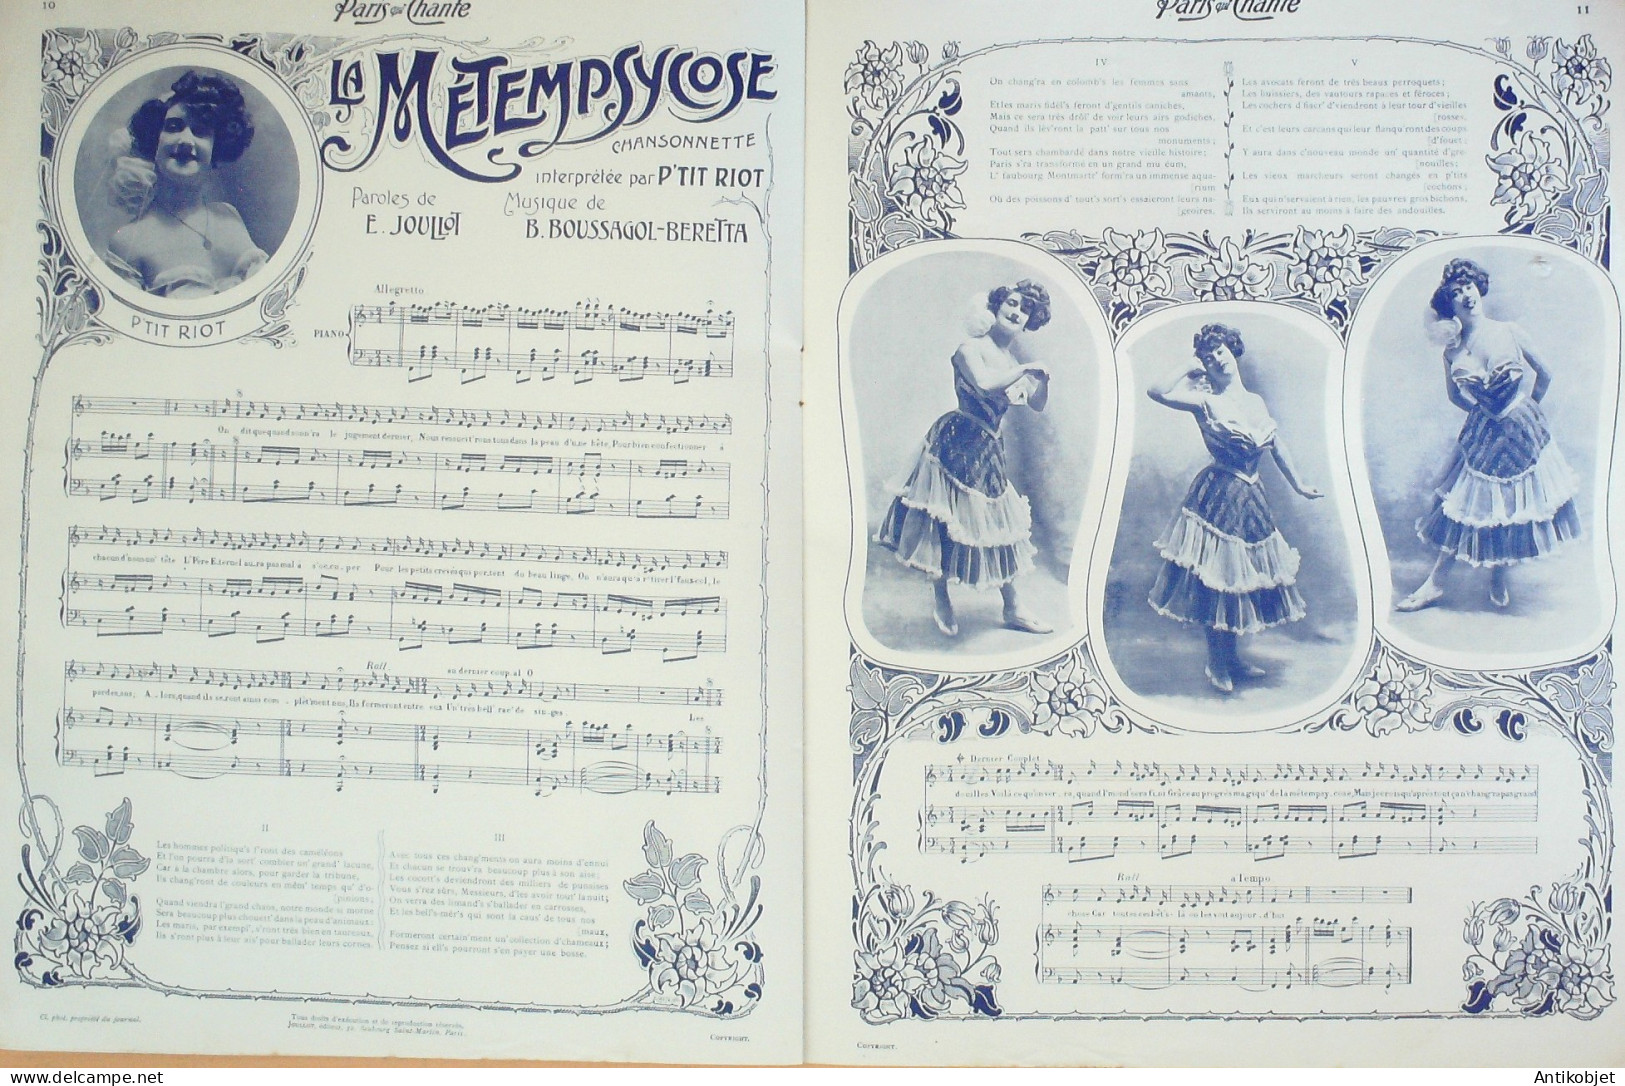 10
Paris qui Chante
LA MÉTEMPSYCOSE
CHANSONNETTE
interprétée par P'TIT RIOT
Paroles de
E. JOULLOT
Musique de
B. BOUSSAGOL-BERETTA
P'TIT RIOT
Allegretto
PIANO
On dit que quand sonn'ra le jugement dernier, Nous ressuscit'rons tous dans la peau d'une bête, Pour bien confectionner à
chacun d'nous un' tête L'Père Eternel aura pas mal à s'occuper Pour les petits crevés qui portent du beau linge, On n'aura qu'à r'tirer l'faux-col, le
pardessus, Alors, quand ils seront ainsi complèt'ment nus, Ils formeront entre eux Un' très bell' rac' de singes. Les
Rall.
au dernier coup. al
II
Les hommes politiqu's f'ront des caméléons
Et l'on pourra d'la sort' combler un' grand' lacune,
Car à la chambre alors, pour garder la tribune,
Ils chang'ront de couleurs en mêm' temps qu' d'o-
[pinions;
Quand viendra l'grand chaos, notre monde si morne
Sera beaucoup plus chouett' dans la peau d'animaux.
Les maris, par exempl', s'ront très bien en taureaux,
Ils s'ront plus à leur ais' pour ballader leurs cornes.
III
Avec tous ces chang'ments on aura moins d'ennui
Et chacun se trouv'ra beaucoup plus à son aise;
Les cocott's deviendront des milliers de punaises
Vous s'rez sûrs, Messieurs, d'les avoir tout' la nuit;
On verra des limand's s'ballader en carrosses,
Et les bell's-mèr's qui sont la caus' de tous nos
[maux,
Formeront certain'ment un' collection d'chameaux;
Pensez si ell's pourront s'en payer une bosse.
Cl. phot. propriété du journal.
Tous droits d'exécution et de reproduction réservés.
JOULLOT, éditeur, 52, faubourg Saint-Martin, Paris.
COPYRIGHT.
Paris qui Chante
11
IV
On chang'ra en colomb's les femmes sans
amants,
Et les maris fidèl's feront d'gentils caniches,
Mais ce sera très drôl' de voir leurs airs godiches,
Quand ils lèv'ront la patt' sur tous nos
monuments;
Tout sera chambardé dans notre vieille histoire;
Paris s'ra transformé en un grand muséum,
L' faubourg Montmartr' form'ra un immense aqua-
[rium
Où des poissons d' tout's sort's essaieront leurs na-
[geoires.
V
Les avocats feront de très beaux perroquets;
Les huissiers, des vautours rapaces et féroces;
Les cochers d'fiacr' d'viendront à leur tour d'vieilles
[rosses,
Et c'est leurs carcans qui leur flanqu'ront des coups
[d'fouet.
Y aura dans c'nouveau monde un' quantité d'gre-
[nouilles;
Les vieux marcheurs seront changés en p'tits
[cochons;
Eux qui n'servaient à rien, les pauvres gros bichons,
Ils serviront au moins à faire des andouilles.
Dernier Couplet
douilles. Voilà ce qu'on verra, quand l'mond' sera fini Grâce au progrès magiqu' de la métempsycose, Mais je crois qu'après tout ça n'chang'ra pas grand
Rall
a Tempo
chose Car toutes ces bêt's-là on les voit aujourd'hui.
COPYRIGHT.
Antikobjet